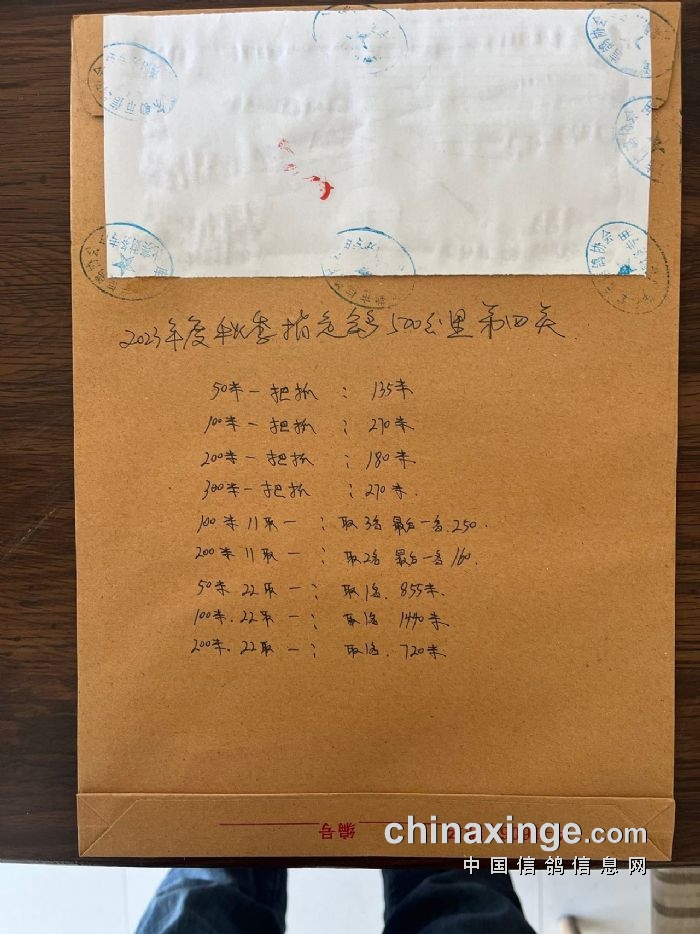 鸽协会
2023年度秋季指定鸽500公里第四关
50米一把抓：135米
100米一把抓：270米
200米一把抓：180米
300米一把抓：270米.
100米11取一：取3名 最后一名.250.
200米11取一：取2名 最后一名160.
50米22取一：取1名.855米.
100米.22取一：取1名 1440米
200米.22取一：取1名.720米.
编号
chinaxinge.com
中国信鸽信息网